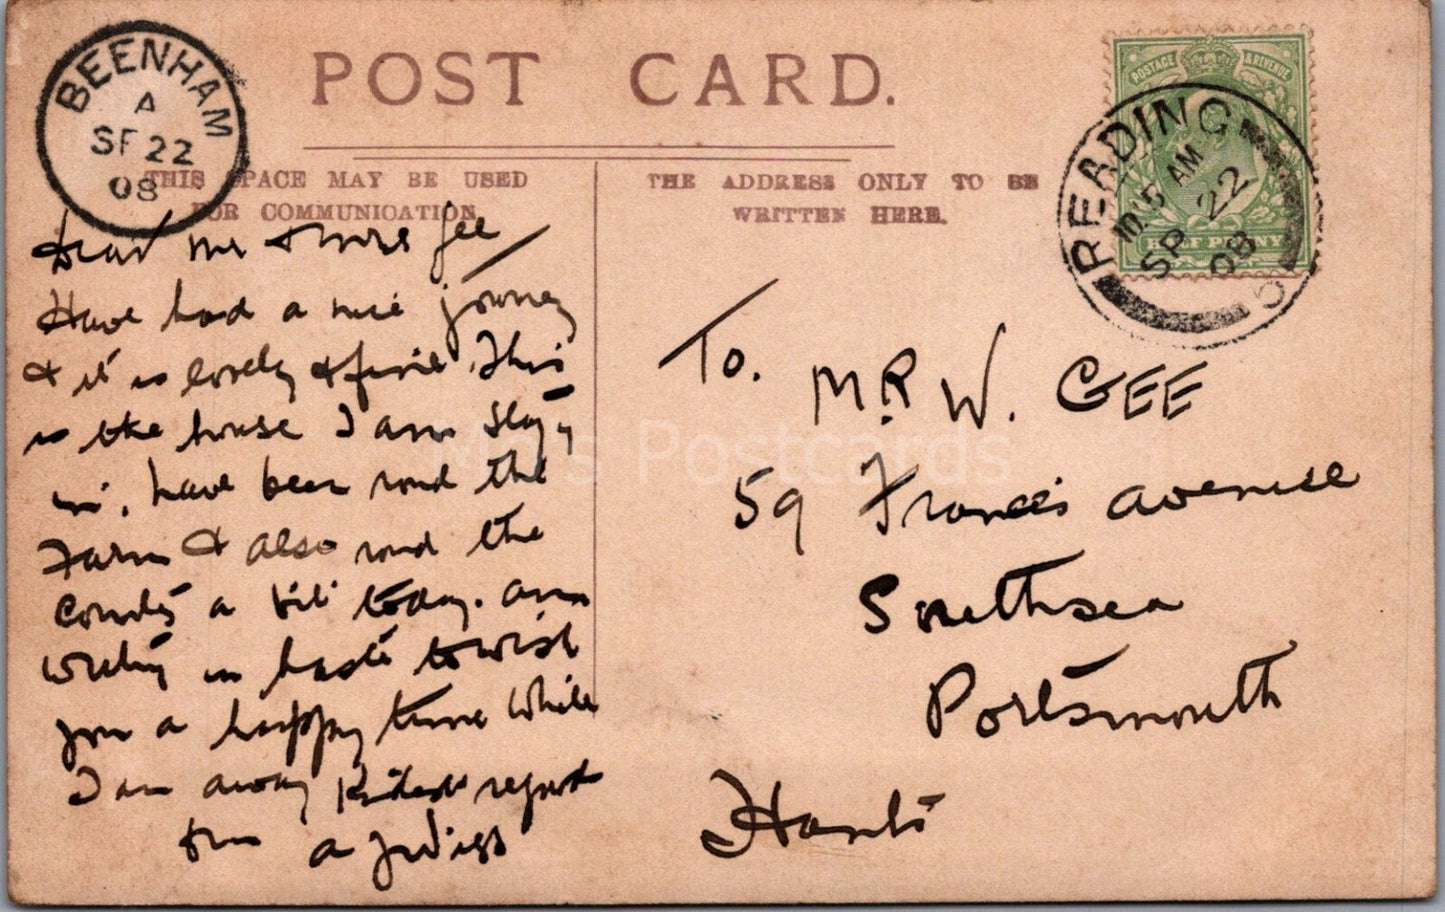 POST CARD.
THIS SPACE MAY BE USED
FOR COMMUNICATION.
THE ADDRESS ONLY TO BE
WRITTEN HERE.
BEENHAM
A
SP 22
08
POSTAGE & REVENUE
HALF PENNY
READING
10.15 AM
SP 22
08
Dear Mr & Mrs Gee
Have had a nice journey
& it is lovely & fine. This
is the house I am stayg
in, have been round the
Farm & also round the
County a bit today. am
writing in haste to wish
you a happy time while
I am away Kindest regards
from a
To.
MR W. GEE
59 Francis avenue
Southsea
Portsmouth
Hants
Postcards